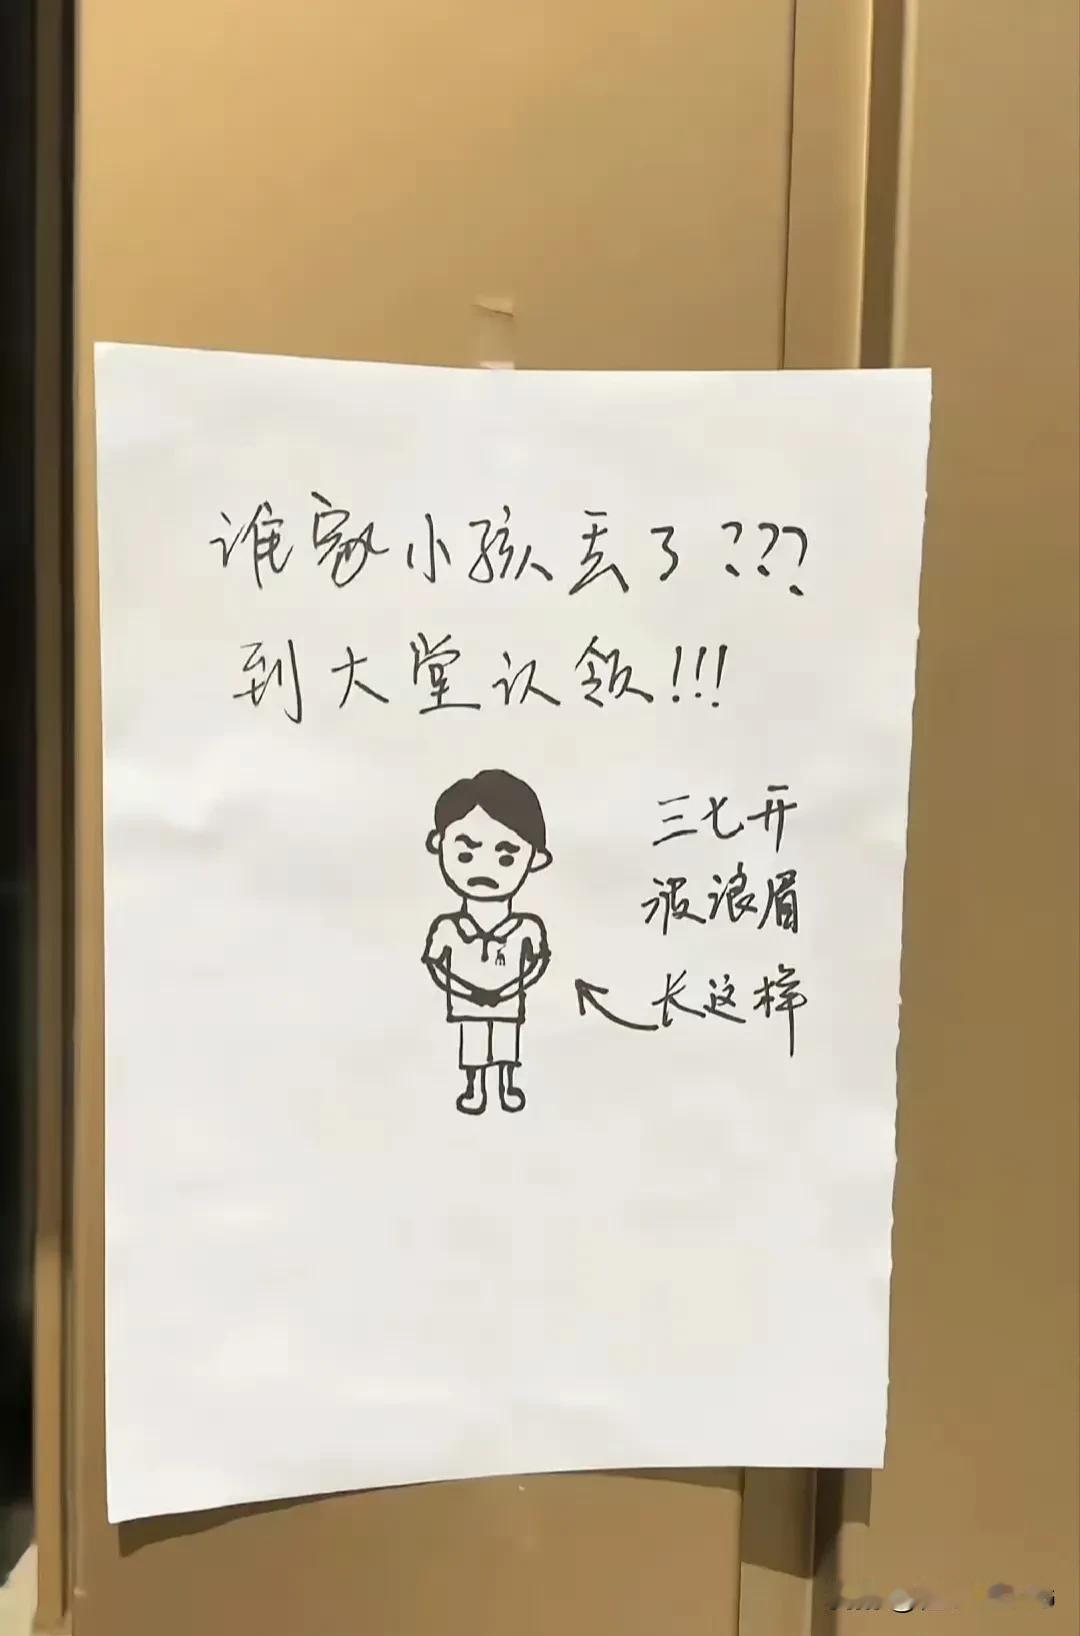 谁家小孩丢了???
到大堂认领!!!
三七开
波浪眉
长这样